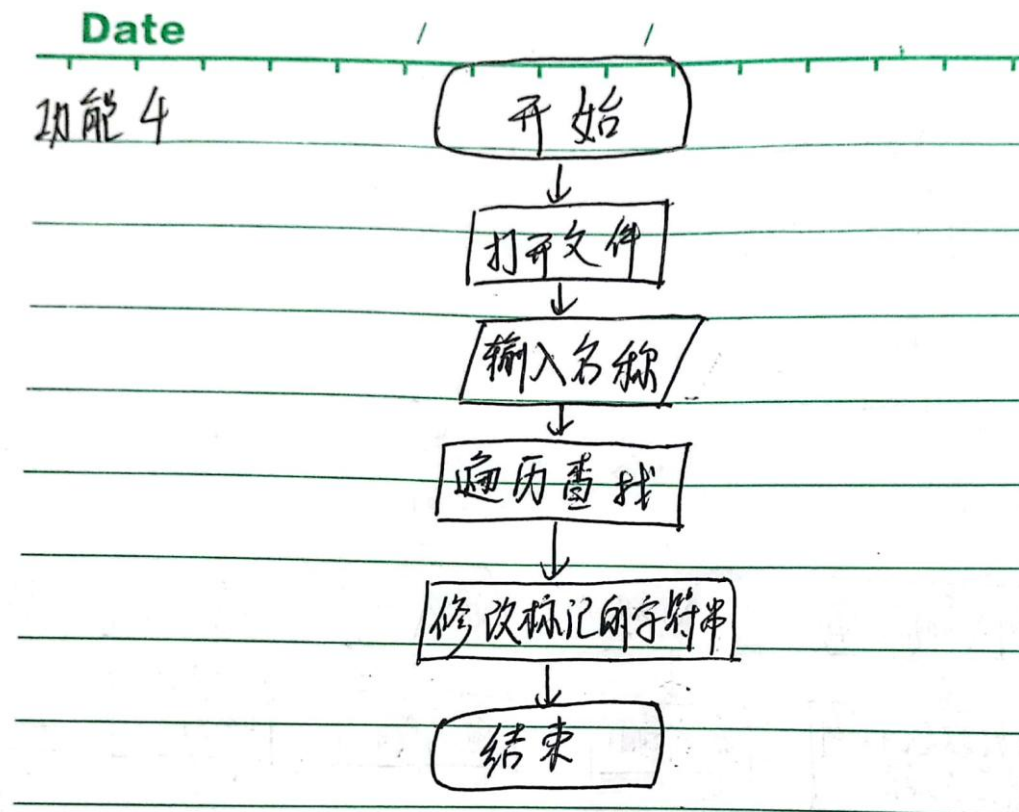 Date / /
功能4
开始
打开文件
输入名称
遍历查找
修改标记的字符串
结束